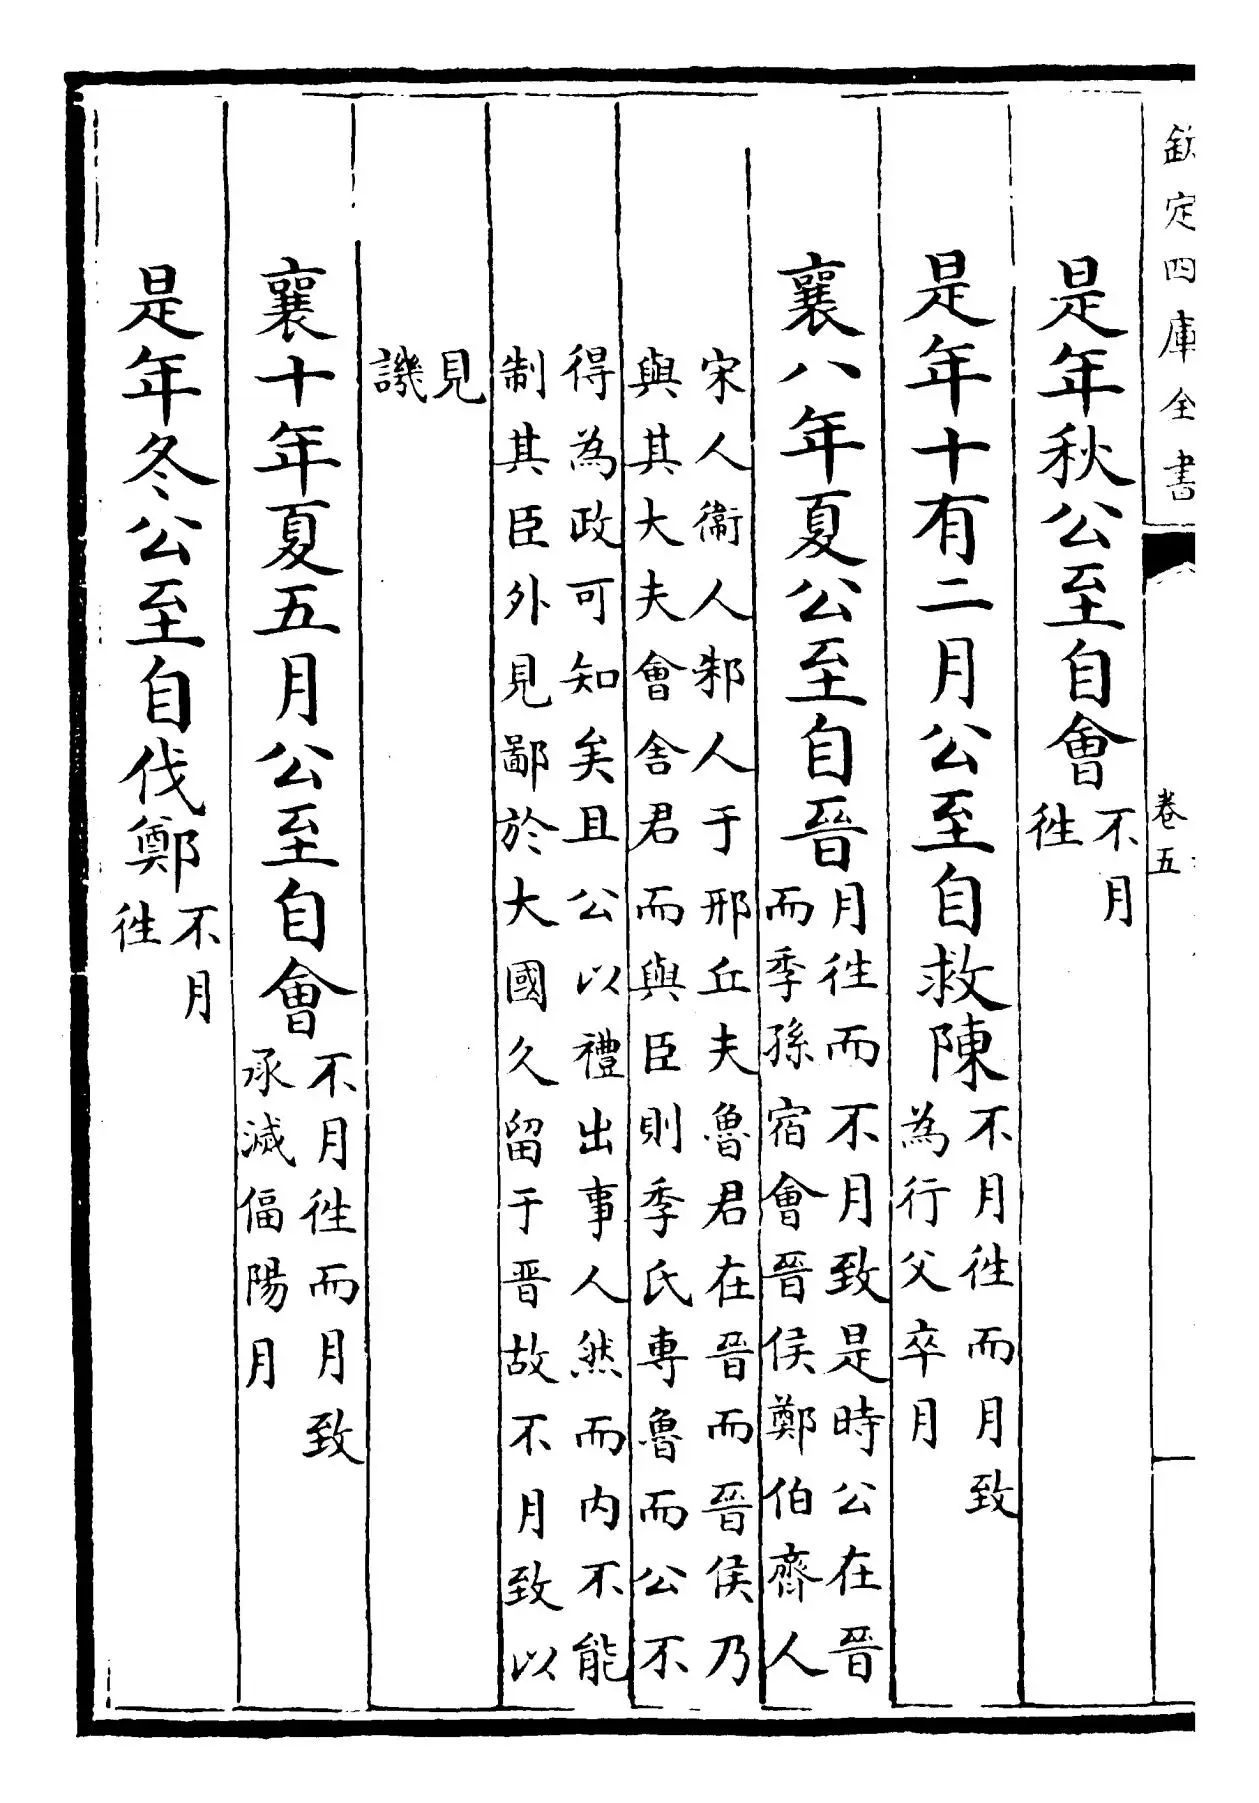 欽定四庫全書
卷五
是年秋公至自會不月
徃
是年十有二月公至自救陳不月徃而月致
為行父卒月
襄八年夏公至自晉月徃而不月致是時公在晉
而季孫宿會晉侯鄭伯齊人
宋人衞人邾人于邢丘夫魯君在晉而晉侯乃
與其大夫會舍君而與臣則季氏專魯而公不
得為政可知矣且公以禮出事人然而内不能
制其臣外見鄙於大國久留于晋故不月致以
見
譏
襄十年夏五月公至自會不月徃而月致
承滅偪陽月
是年冬公至自伐鄭不月
徃